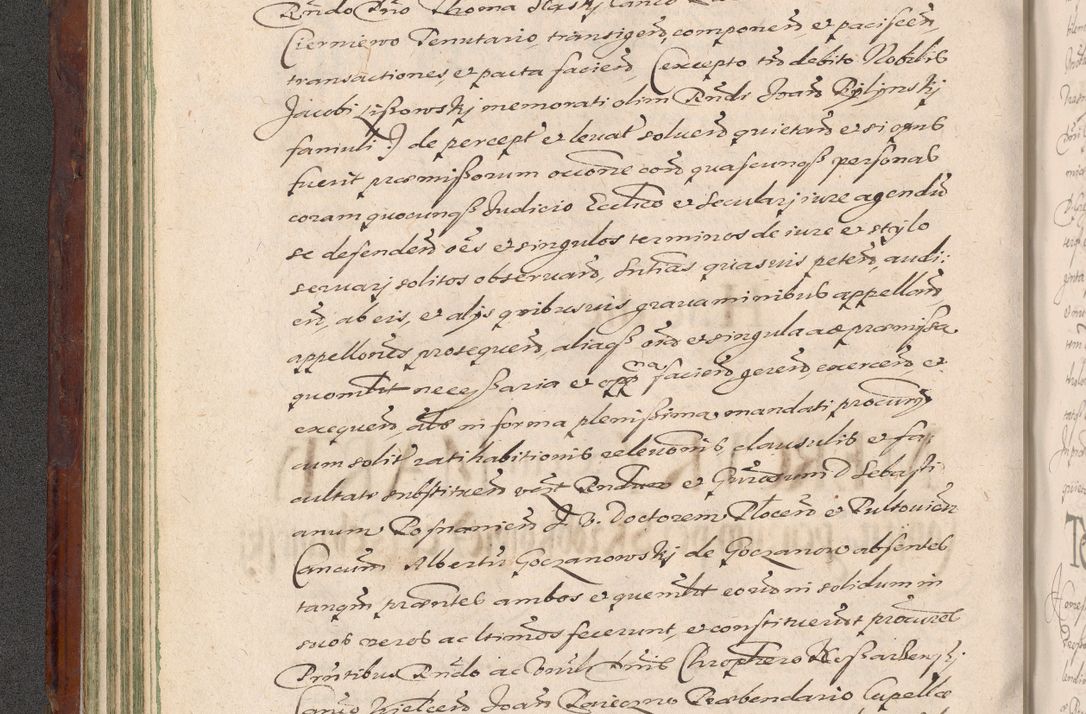 Rndo Dno Thoma
Cierniewo Tenutario, transigend, componend, et paciscen,
transactiones, et pacta faciend, (excepto tn debito Nobilis
Jacobi Lissowskj memorati olim Rndi Joan Rylynskj
famuli) de percept et levat solvend quietand et si opus
fuerit præmissorum occone cord quascunqs personas
coram quocunqs Judicio Ecclico et Secularj iure agendu
se defendend oes et singulos terminos de iure et stylo
servarj solitos observand, Sntias quasvis petend, audi:
end, ab eis, et alys quibusvis gravaminibus appelland,
appellones prosequend, aliaqs oia et singula ad præmissa
quomlbt necessaria et oppna faciend gerend, exercend et
exequend, als in forma plenissima mandati procurys
cum solit ratihabitionis relevonis clausulis et fa:
cultate substituend
anum Posnanien J. V. Doctorem Plocen et Pultovien
Cancum Albertu Goczanowskj de Goczanowo absentes
tanqm præntes ambos et quemlbt eorum in solidum in
suos veros ac ltimos fecerunt, et constituerut procures
Prntibus Rndo ac Dnis
Canco Kielcen Joan Præbendario Capellæ